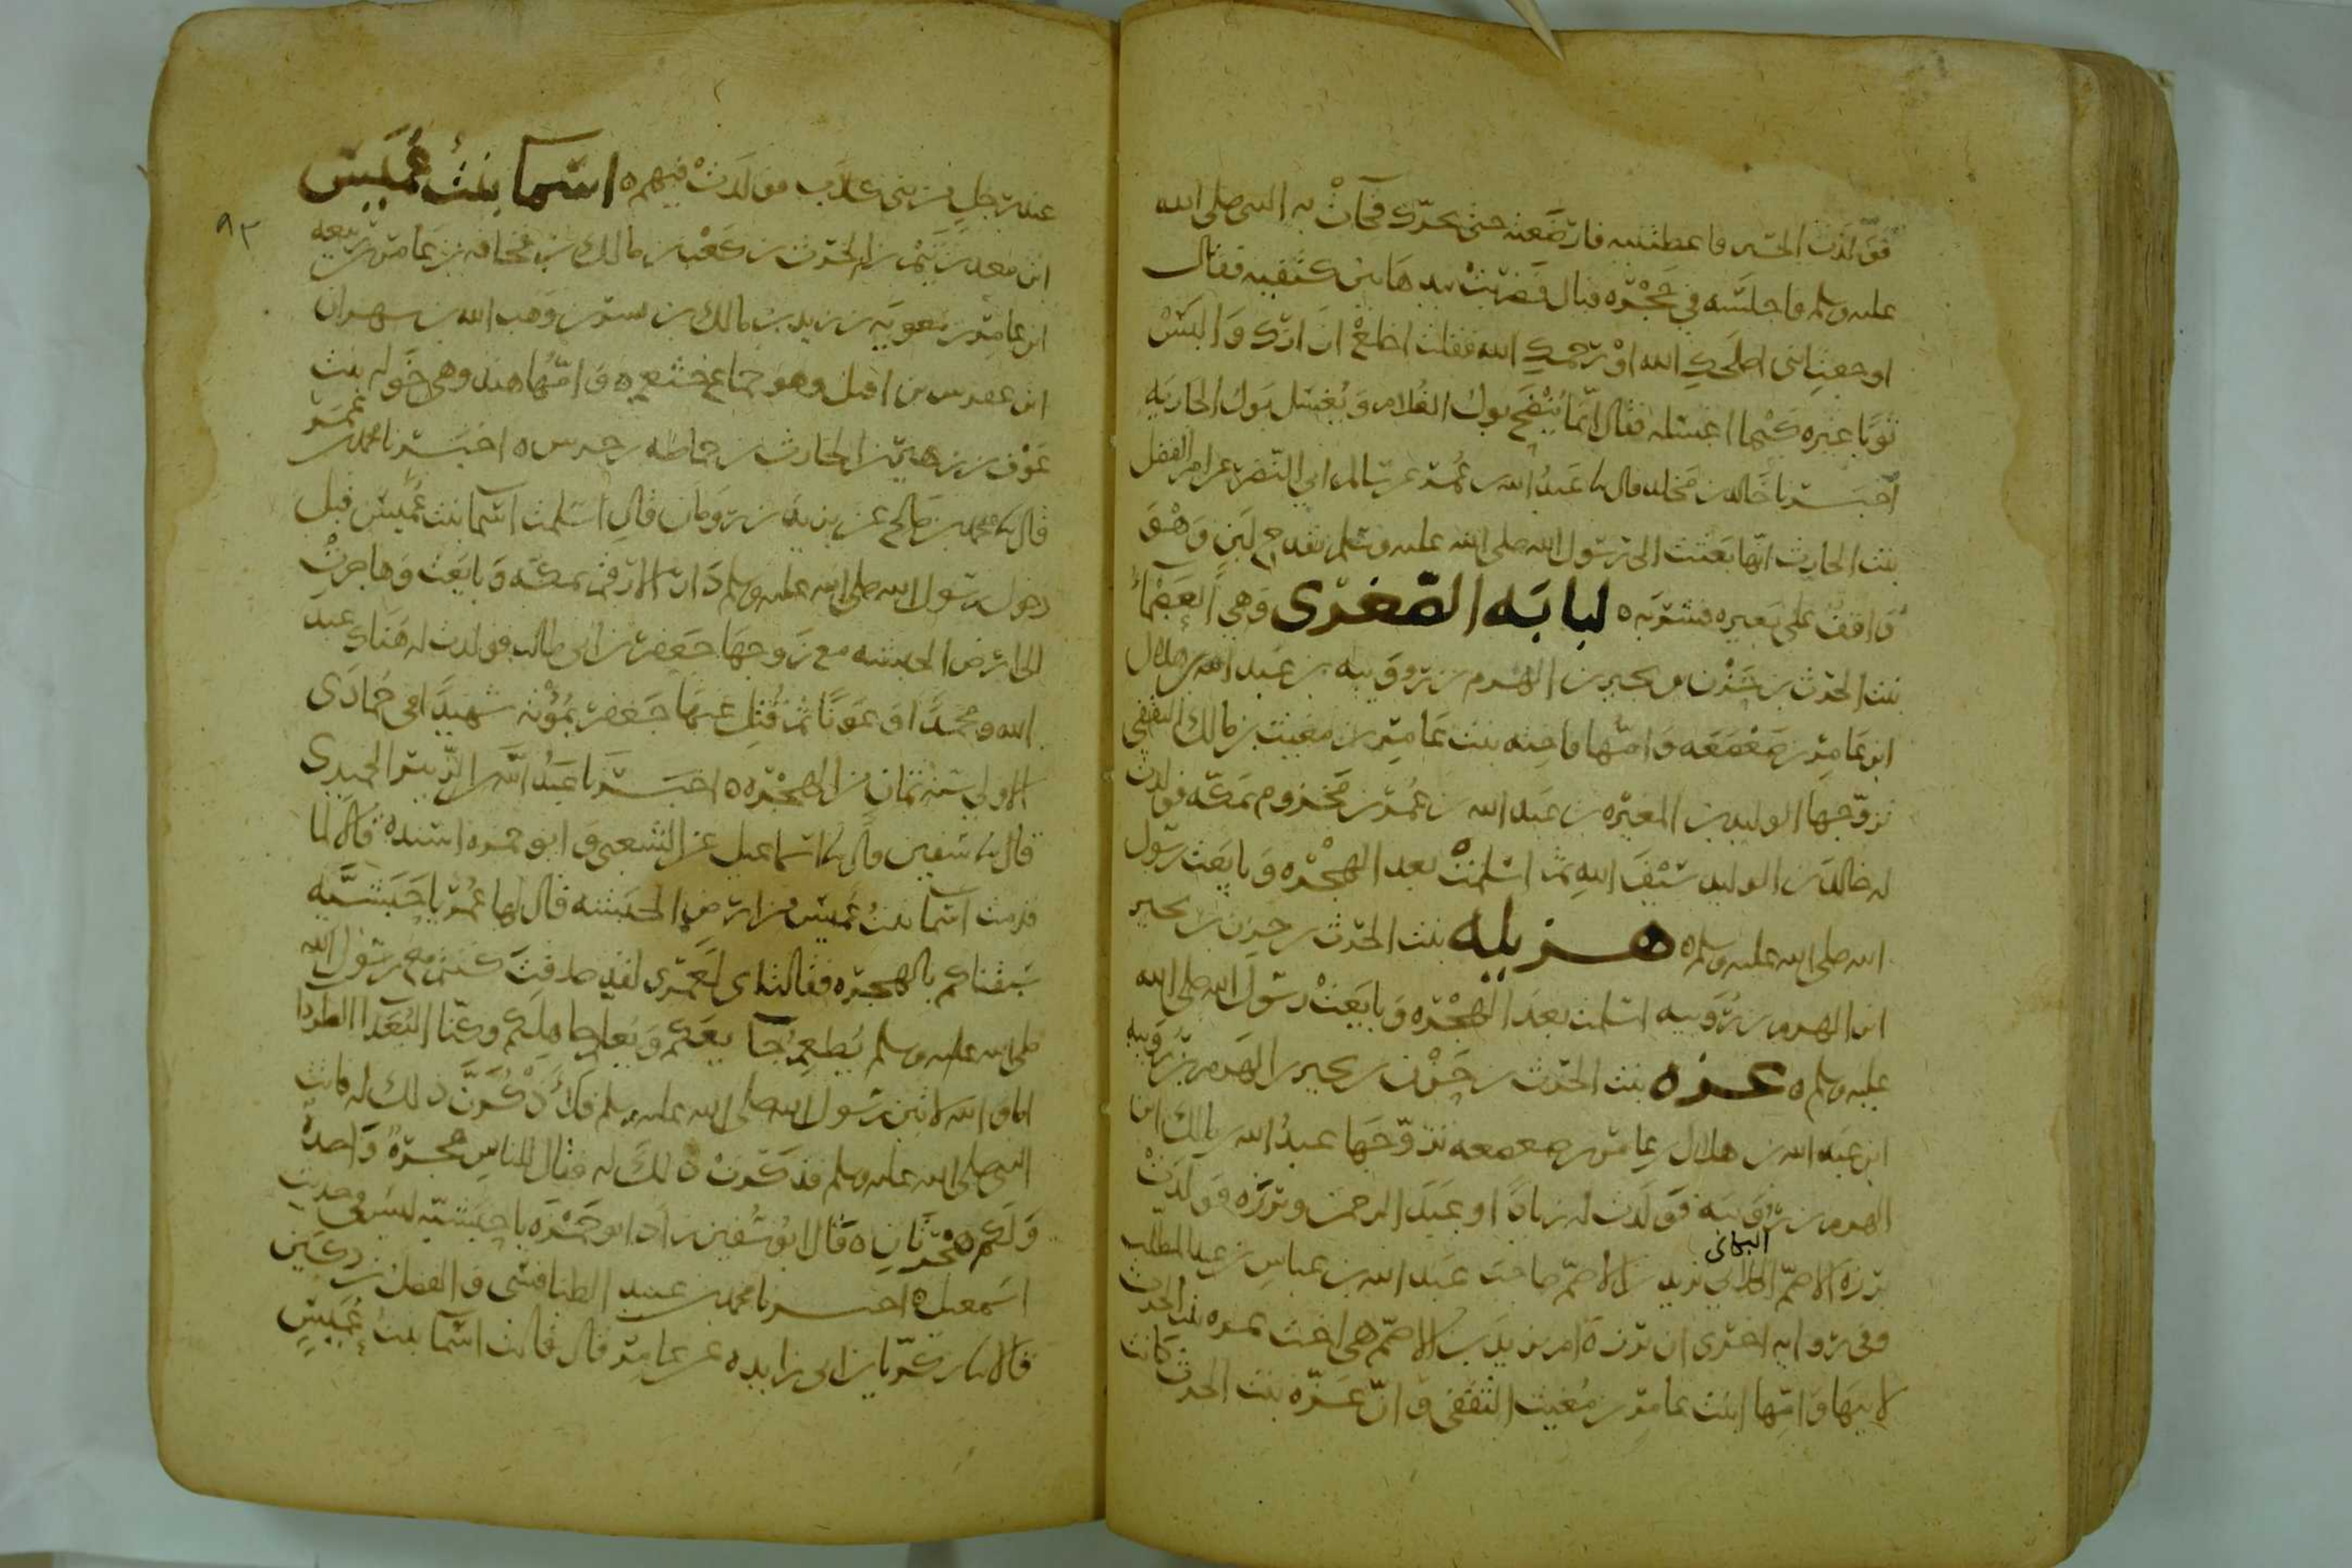 فولدت الحسين فاعطتنيه فارضعته حتى تحرك فجاءت به النبي صلى الله
عليه وسلم فاجلسته في حجره فبال فضربت بيدها بين كتفيه فقال
اوجعت ابني اصلحك الله او رحمك الله فقلت اخلع ازارك والبس
ثوبا غيره كيما اغسله فقال انما ينضح بول الغلام ويغسل بول الجاريه
اخبرنا خالد بن مخلد قال عبد الله بن عمر عن سالم ابي النضر عن ام الفضل
بنت الحارث انها بعثت الى رسول الله صلى الله عليه وسلم بقدح لبن وهو
واقف على بعيره فشربه ه لبابه الصغرى وهي العصماء
بنت الحرث بن حزن بن بجير بن الهزم بن رويبه بن عبد الله بن هلال
ابن عامر بن صعصعه وامها فاخته بنت عامر بن معتب بن مالك الثقفي
تزوجها الوليد بن المغيره بن عبد الله بن عمر بن مخزوم بمكه فولدت
له خالد بن الوليد سيف الله ثم اسلمت بعد الهجره وبايعت رسول
الله صلى الله عليه وسلم ه هزيله بنت الحرث بن حزن بن بجير
ابن الهزم بن رويبه اسلمت بعد الهجره وبايعت رسول الله صلى الله
عليه وسلم ه عزه بنت الحرث بن حزن بن بجير بن الهزم بن رويبه
ابن عبد الله بن هلال بن عامر بن صعصعه تزوجها عبد الله بن مالك ابن
الهزم بن رويبه فولدت له زيادا وعبد الرحمن وبرزه فولدت
برزه الاصم البكائي يزيد بن الاصم صاحب عبد الله بن عباس بن عبد المطلب
وفي روايه اخرى ان برزه ام يزيد بن الاصم هي اخت عزه بنت الحرث
لابيها وامها ابنت عامر بن معتب الثقفي وان عزه بنت الحرث كانت
عند رجل من بني كلاب فولدت فيهم ه اسما بنت عميس
٩٢
ابن معد بن تيم بن الحرث بن كعب بن مالك بن قحافه بن عامر بن ربيعه
ابن عامر بن معويه بن زيد بن مالك بن نسر بن وهب الله بن شهران
ابن عفرس بن افتل وهو جماع خثعم ه وامها هند وهي خوله بنت
عوف بن زهير بن الحارث بن حماطه بن جرش ه اخبرنا محمد بن عمر
قال محمد بن صالح عن يزيد بن رومان قال اسلمت اسما بنت عميس قبل
دخول رسول الله صلى الله عليه وسلم دار الارقم بمكه وبايعت وهاجرت
الى ارض الحبشه مع زوجها جعفر بن ابي طالب فولدت له هناك عبد
الله ومحمدا وعونا ثم قتل عنها جعفر بمؤته شهيدا في جمادى
الاولى سنه ثمان من الهجره ه اخبرنا عبد الله بن الزبير الحميدي
قال سفين قال اسماعيل عن الشعبي وابو حمزه اسنده قالا لما
قدمت اسما بنت عميس من ارض الحبشه قال لها عمر يا حبشيه
سبقناكم بالهجره فقالت اي لعمري لقد صدقت كنتم مع رسول الله
صلى الله عليه وسلم يطعم جائعكم ويعلم جاهلكم وكنا البعدا الطردا
اما والله لاتين رسول الله صلى الله عليه وسلم فلاذكرن ذلك له فاتت
النبي صلى الله عليه وسلم فذكرت ذلك له فقال للناس هجره واحده
ولكم هجرتان ه قال ابو سفين زاد ابو حمزه يا حبشيه ليس في حديث
اسمعيل ه اخبرنا محمد بن عبيد الطنافسي والفضل بن دكين
قالا زكريا بن ابي زايده عن عامر قال قالت اسما بنت عميس